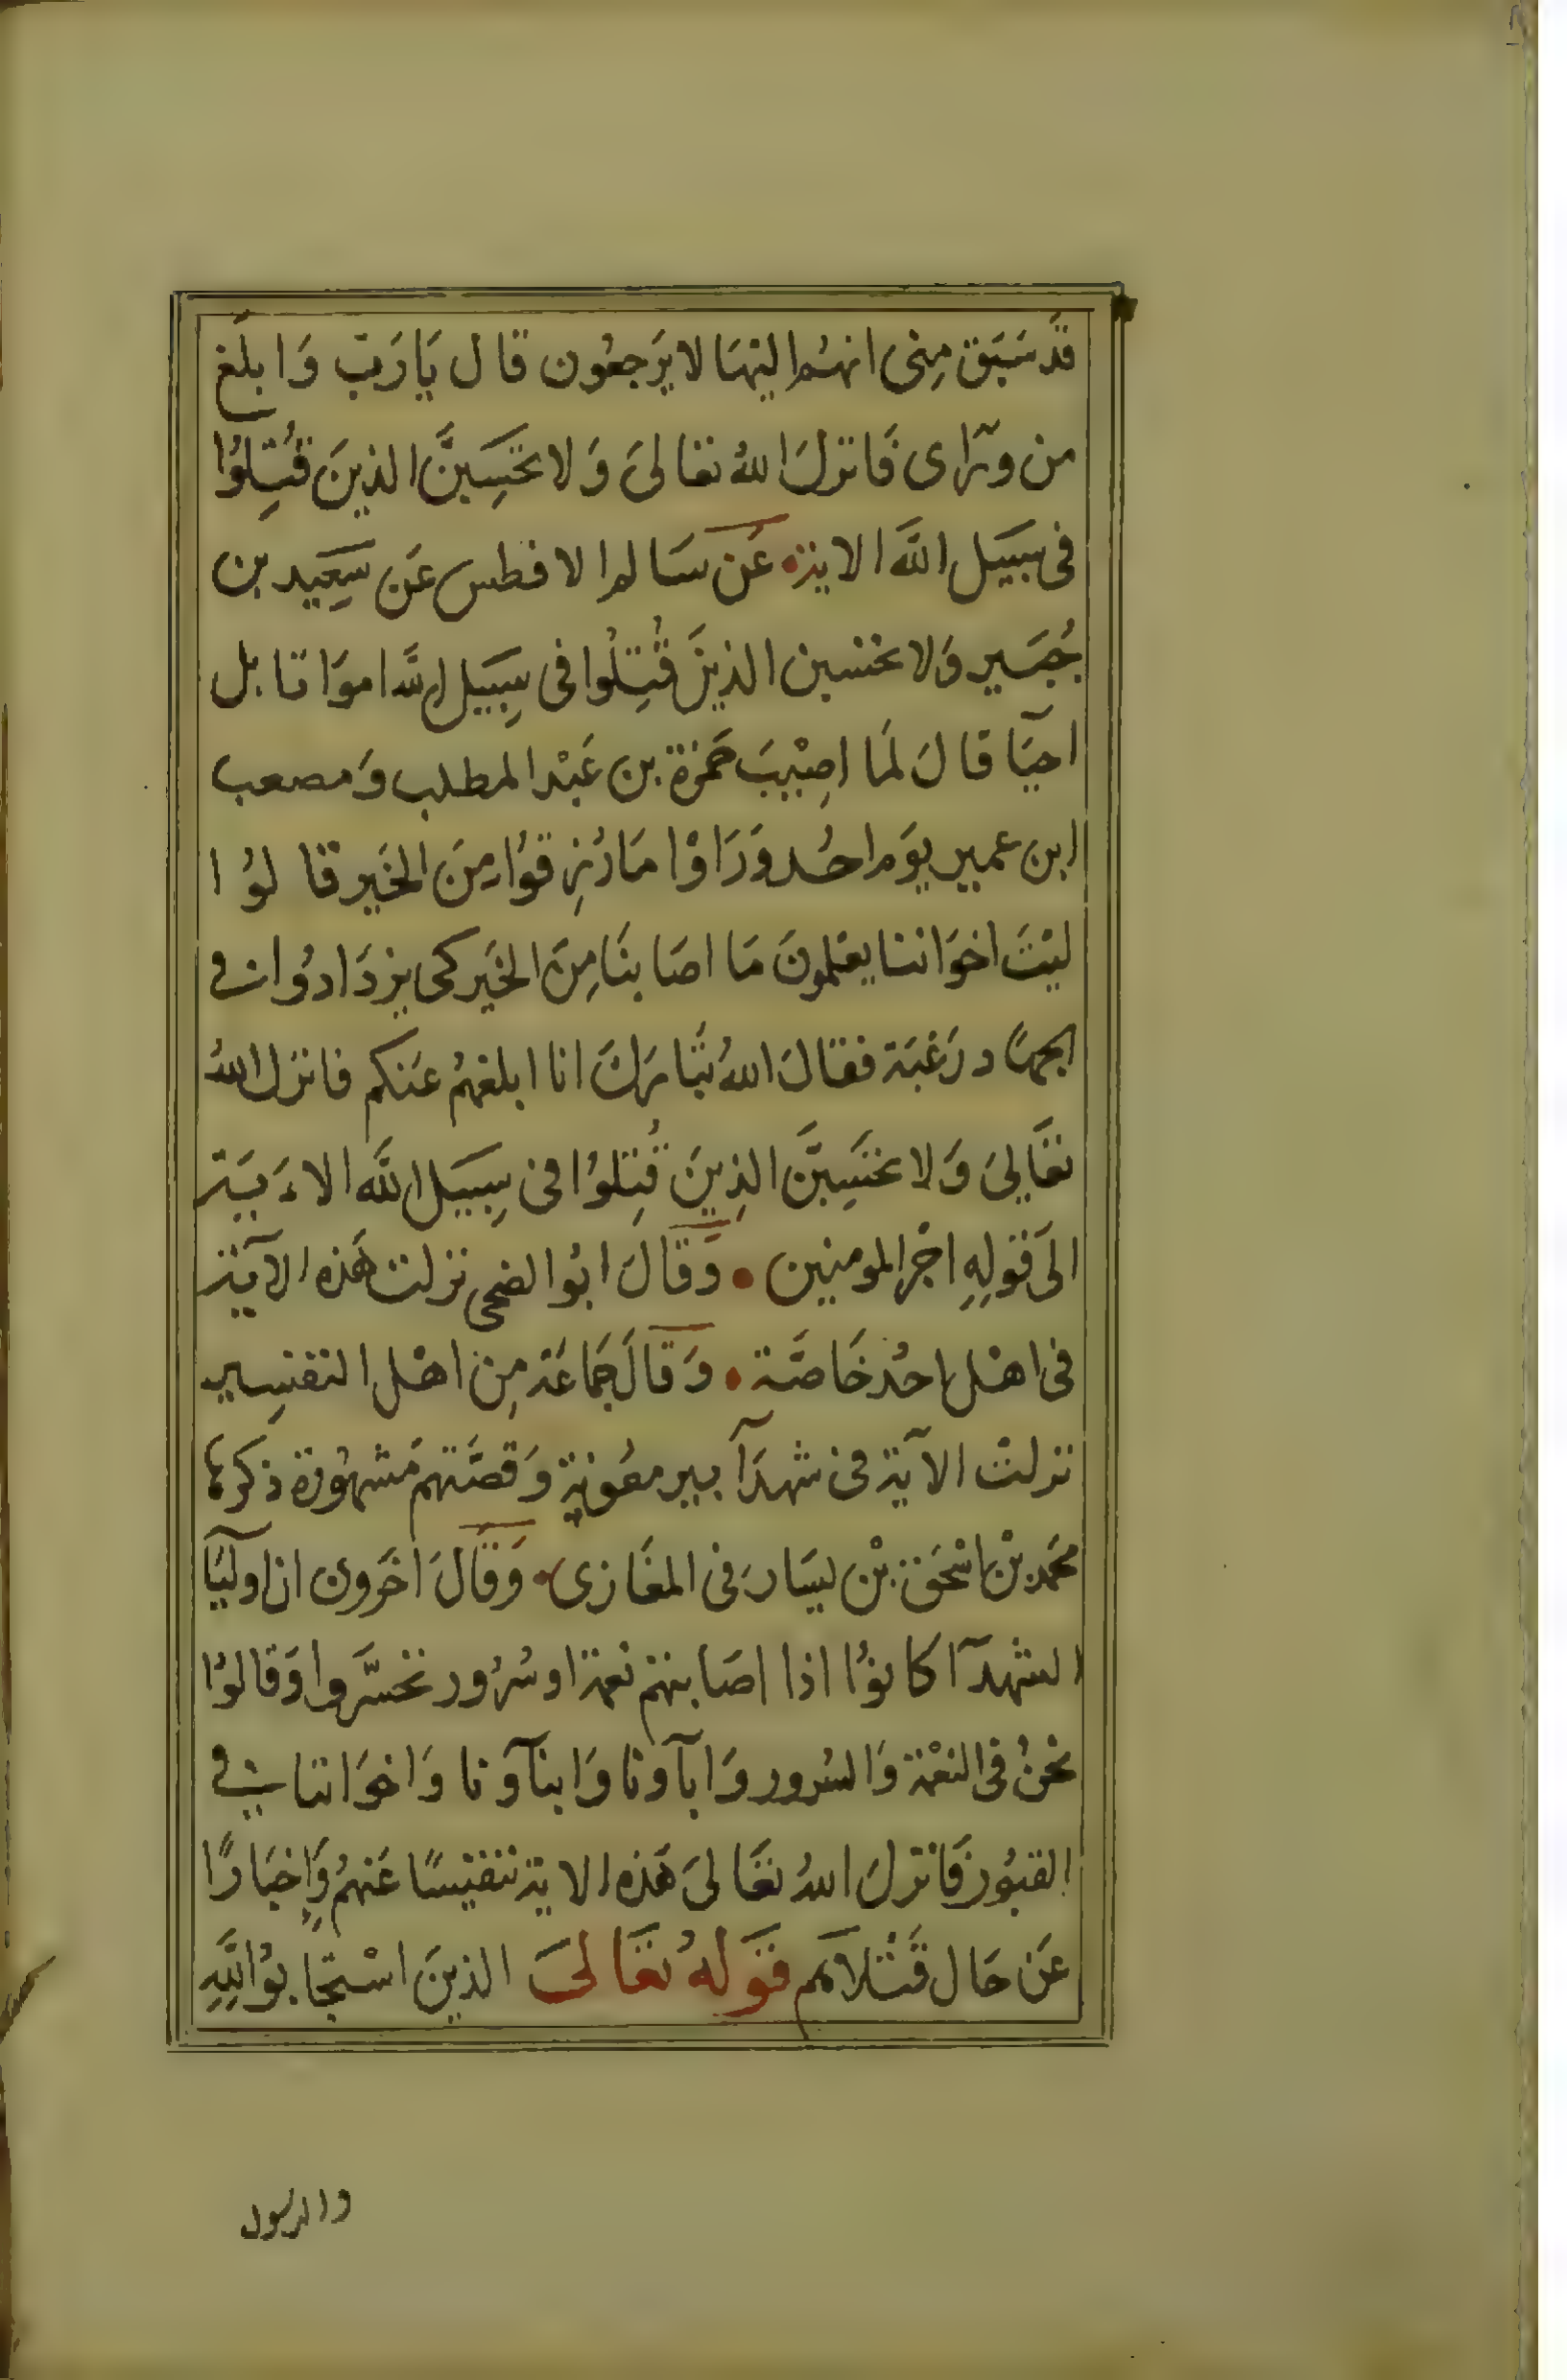 قَد سَبَق مِنی انهُم الیهَا لا یَرجعُون قال یَا رَبّ وَابلَغ
من وَرَآی فَانزلَ اللهُ تعَالیَ وَلا تحَسِبَنَّ الذینَ قُتِلوُا
فی سبیَل اللَّه الایة عَن سَالم الافطس عَن سَعِید بن
جُبَیر وَلا تحسبن الذینَ قُتِلُوا فی سِبیَل اللَّه اموَاتا بل
احیَآ قالَ لمَا اصِیْبَ حمَزة بن عَبْد المطلب وَمصعب
ابن عمیر یوَم احُد وَرَاوْا مَا رُزِقوُا مِنَ الخَیر قالوُا
لیْتَ اخوَاننا یعْلمونَ مَا اصَابنَا مِنَ الخَیر کی یزدَادوُا فی
الجهَاد رَغبَة فقالَ اللهُ تبَارَكَ انا ابلغهُم عَنکم فانزل اللهُ
تعَالیَ وَلا تحَسِبَنَّ الذِینَ قُتِلوُا فی سِبیَل اللَّه الاءَیَة
الیَ قوَلِهِ اجْر المومنین وَقَالَ ابوُ الضحی نزلت هَذه الآیَة
فی اهْل احُد خَاصَّة وَقالَ جمَاعَة مِن اهْل التفسِیر
نزلتْ الآیَة فی شهدَآ بیر معُونة وَقصَّتهم مَشهوُرة ذکرهَا
محَمد بْن اسْحَق بْن یسَار فی المغَازی وَقَالَ اخَروُن ان اولیَآ
الشهدَآ کانوُا اذا اصَابتهم نعمة او سُرُور تحسَّروا وَقالوُا
نحنُ فی النعْمَة وَالسُرور وَابآونا وَابنآونا وَاخوَاننا فی
القبُور فَانزلَ اللهُ تعَالیَ هَذه الایة تنفیسًا عَنهمُ وَاِخبَارًا
عَن حَال قَتْلاَهم قوَلهُ تعَالیَ الذینَ اسْتجَابوُا لِلَّهِ
والرسول